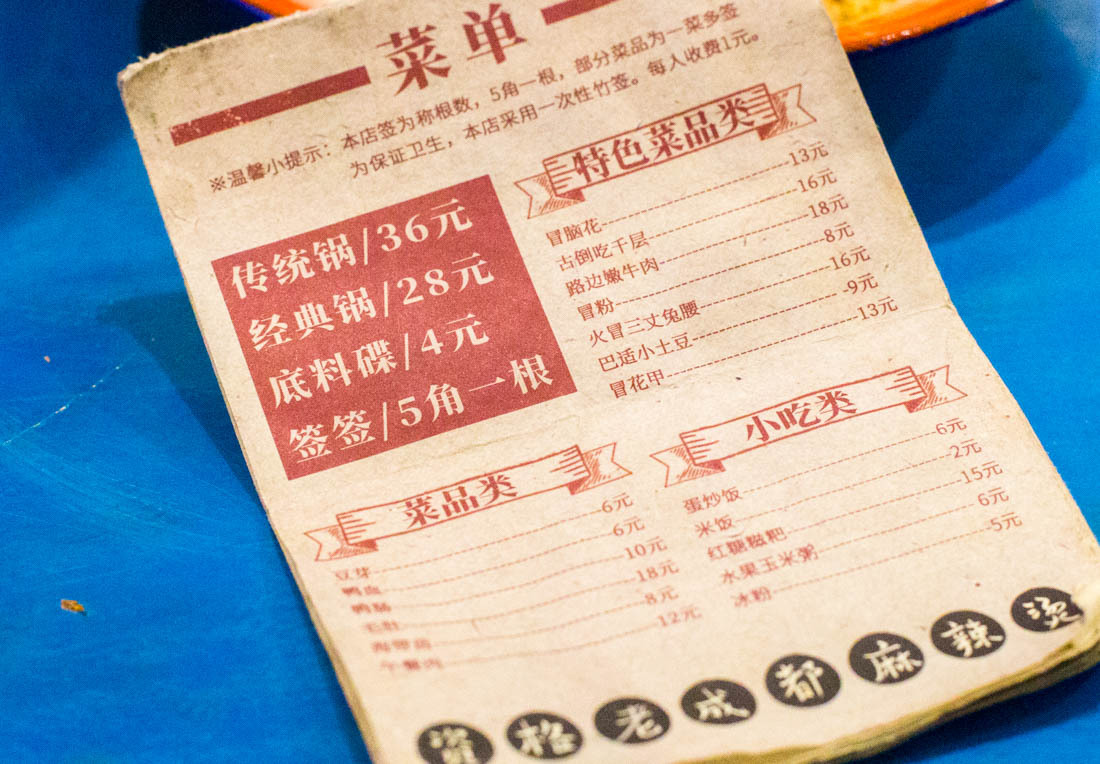 菜单
※温馨小提示：本店签为称根数，5角一根，部分菜品为一菜多签
为保证卫生，本店采用一次性竹签。每人收费1元。
传统锅/36元
经典锅/28元
底料碟/4元
签签/5角一根
特色菜品类
冒脑花 13元
古倒吃千层 16元
路边嫩牛肉 18元
冒粉 8元
火冒三丈兔腰 16元
巴适小土豆 9元
冒花甲 13元
菜品类
豆芽 6元
鸭血 6元
鸭肠 10元
毛肚 18元
海带苗 8元
午餐肉 12元
小吃类
蛋炒饭 6元
米饭 2元
红糖糍粑 15元
水果玉米粥 6元
冰粉 5元
资格老成都麻辣烫